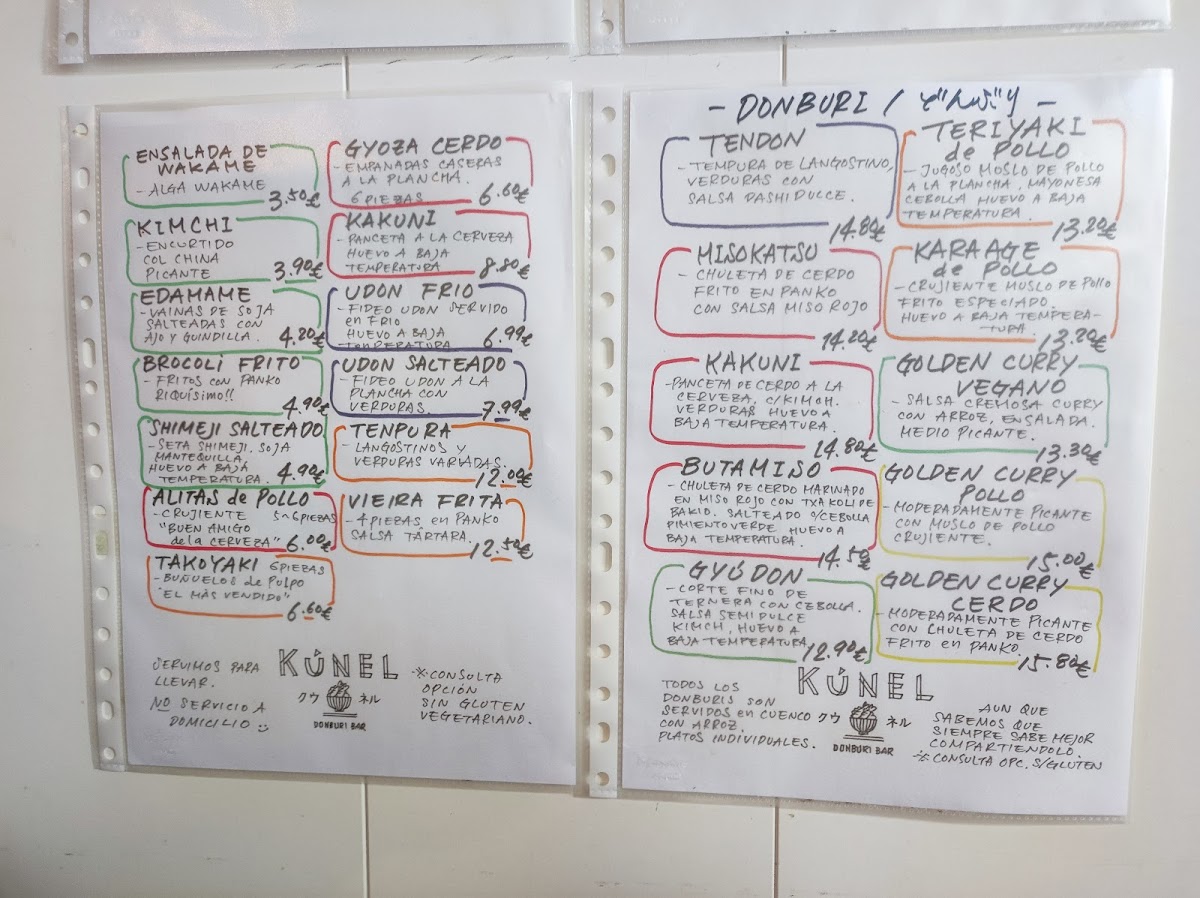 ENSALADA DE
WAKAME
- ALGA WAKAME
3.50€
KIMCHI
- ENCURTIDO
COL CHINA
PICANTE
3.90€
EDAMAME
- VAINAS DE SOJA
SALTEADAS CON
AJO Y GUINDILLA.
4.20€
BROCOLI FRITO
- FRITOS CON PANKO
RIQUÍSIMO!!
4.90€
SHIMEJI SALTEADO
- SETA SHIMEJI. SOJA
MANTEQUILLA.
HUEVO A BAJA
TEMPERATURA.
4.90€
ALITAS de POLLO
- CRUJIENTE 5~6 PIEZAS
"BUEN AMIGO
de la CERVEZA"
6.00€
TAKOYAKI 6 PIEZAS
- BUÑUELOS de PULPO
"EL MÀS VENDIDO"
6.60€
GYOZA CERDO
- EMPANADAS CASERAS
A LA PLANCHA.
6 PIEZAS
6.60€
KAKUNI
- PANCETA A LA CERVEZA
HUEVO A BAJA
TEMPERATURA
8.80€
UDON FRIO
- FIDEO UDON SERVIDO
en FRIO
HUEVO A BAJA
TEMPERATURA
6.99€
UDON SALTEADO
- FIDEO UDON A LA
PLANCHA CON
VERDURAS.
7.99€
TENPURA
- LANGOSTINOS Y
VERDURAS VARIADAS.
12.00€
VIEIRA FRITA
- 4 PIEZAS en PANKO
SALSA TARTARA.
12.50€
SERVIMOS PARA
LLEVAR.
NO SERVICIO A
DOMICILIO
KÚNEL
クウ ネル
DONBURI BAR
※CONSULTA
OPCIÓN
SIN GLUTEN
VEGETARIANO.
- DONBURI / どんぶり -
TENDON
- TEMPURA DE LANGOSTINO,
VERDURAS CON
SALSA DASHI DULCE.
14.80€
MISOKATSU
- CHULETA DE CERDO
FRITO EN PANKO
CON SALSA MISO ROJO
14.20€
KAKUNI
- PANCETA DE CERDO A LA
CERVEZA, C/KIMCH.
VERDURAS HUEVO A
BAJA TEMPERATURA.
14.80€
BUTAMISO
- CHULETA DE CERDO MARINADO
EN MISO ROJO CON TXAKOLI DE
BAKIO. SALTEADO C/CEBOLLA
PIMIENTO VERDE HUEVO A
BAJA TEMPERATURA.
14.50€
GYÚDON
- CORTE FINO DE
TERNERA CON CEBOLLA.
SALSA SEMIDULCE
KIMCH, HUEVO A
BAJA TEMPERATURA
12.90€
TERIYAKI
de POLLO
- JUGOSO MUSLO DE POLLO
A LA PLANCHA. MAYONESA
CEBOLLA HUEVO A BAJA
TEMPERATURA.
13.20€
KARAAGE
de POLLO
- CRUJIENTE MUSLO DE POLLO
FRITO ESPECIADO.
HUEVO A BAJA TEMPERA-
-TURA.
13.20€
GOLDEN CURRY
VEGANO
- SALSA CREMOSA CURRY
CON ARROZ, ENSALADA.
MEDIO PICANTE.
13.30€
GOLDEN CURRY
POLLO
- MODERADAMENTE PICANTE
CON MUSLO DE POLLO
CRUJIENTE.
15.00€
GOLDEN CURRY
CERDO
- MODERADAMENTE PICANTE
CON CHULETA DE CERDO
FRITO en PANKO.
15.80€
TODOS LOS
DONBURIS SON
SERVIDOS en CUENCO
CON ARROZ.
PLATOS INDIVIDUALES.
KÚNEL
クウ ネル
DONBURI BAR
AUN QUE
SABEMOS QUE
SIEMPRE SABE MEJOR
COMPARTIENDOLO.
※CONSULTA OPC. S/GLUTEN